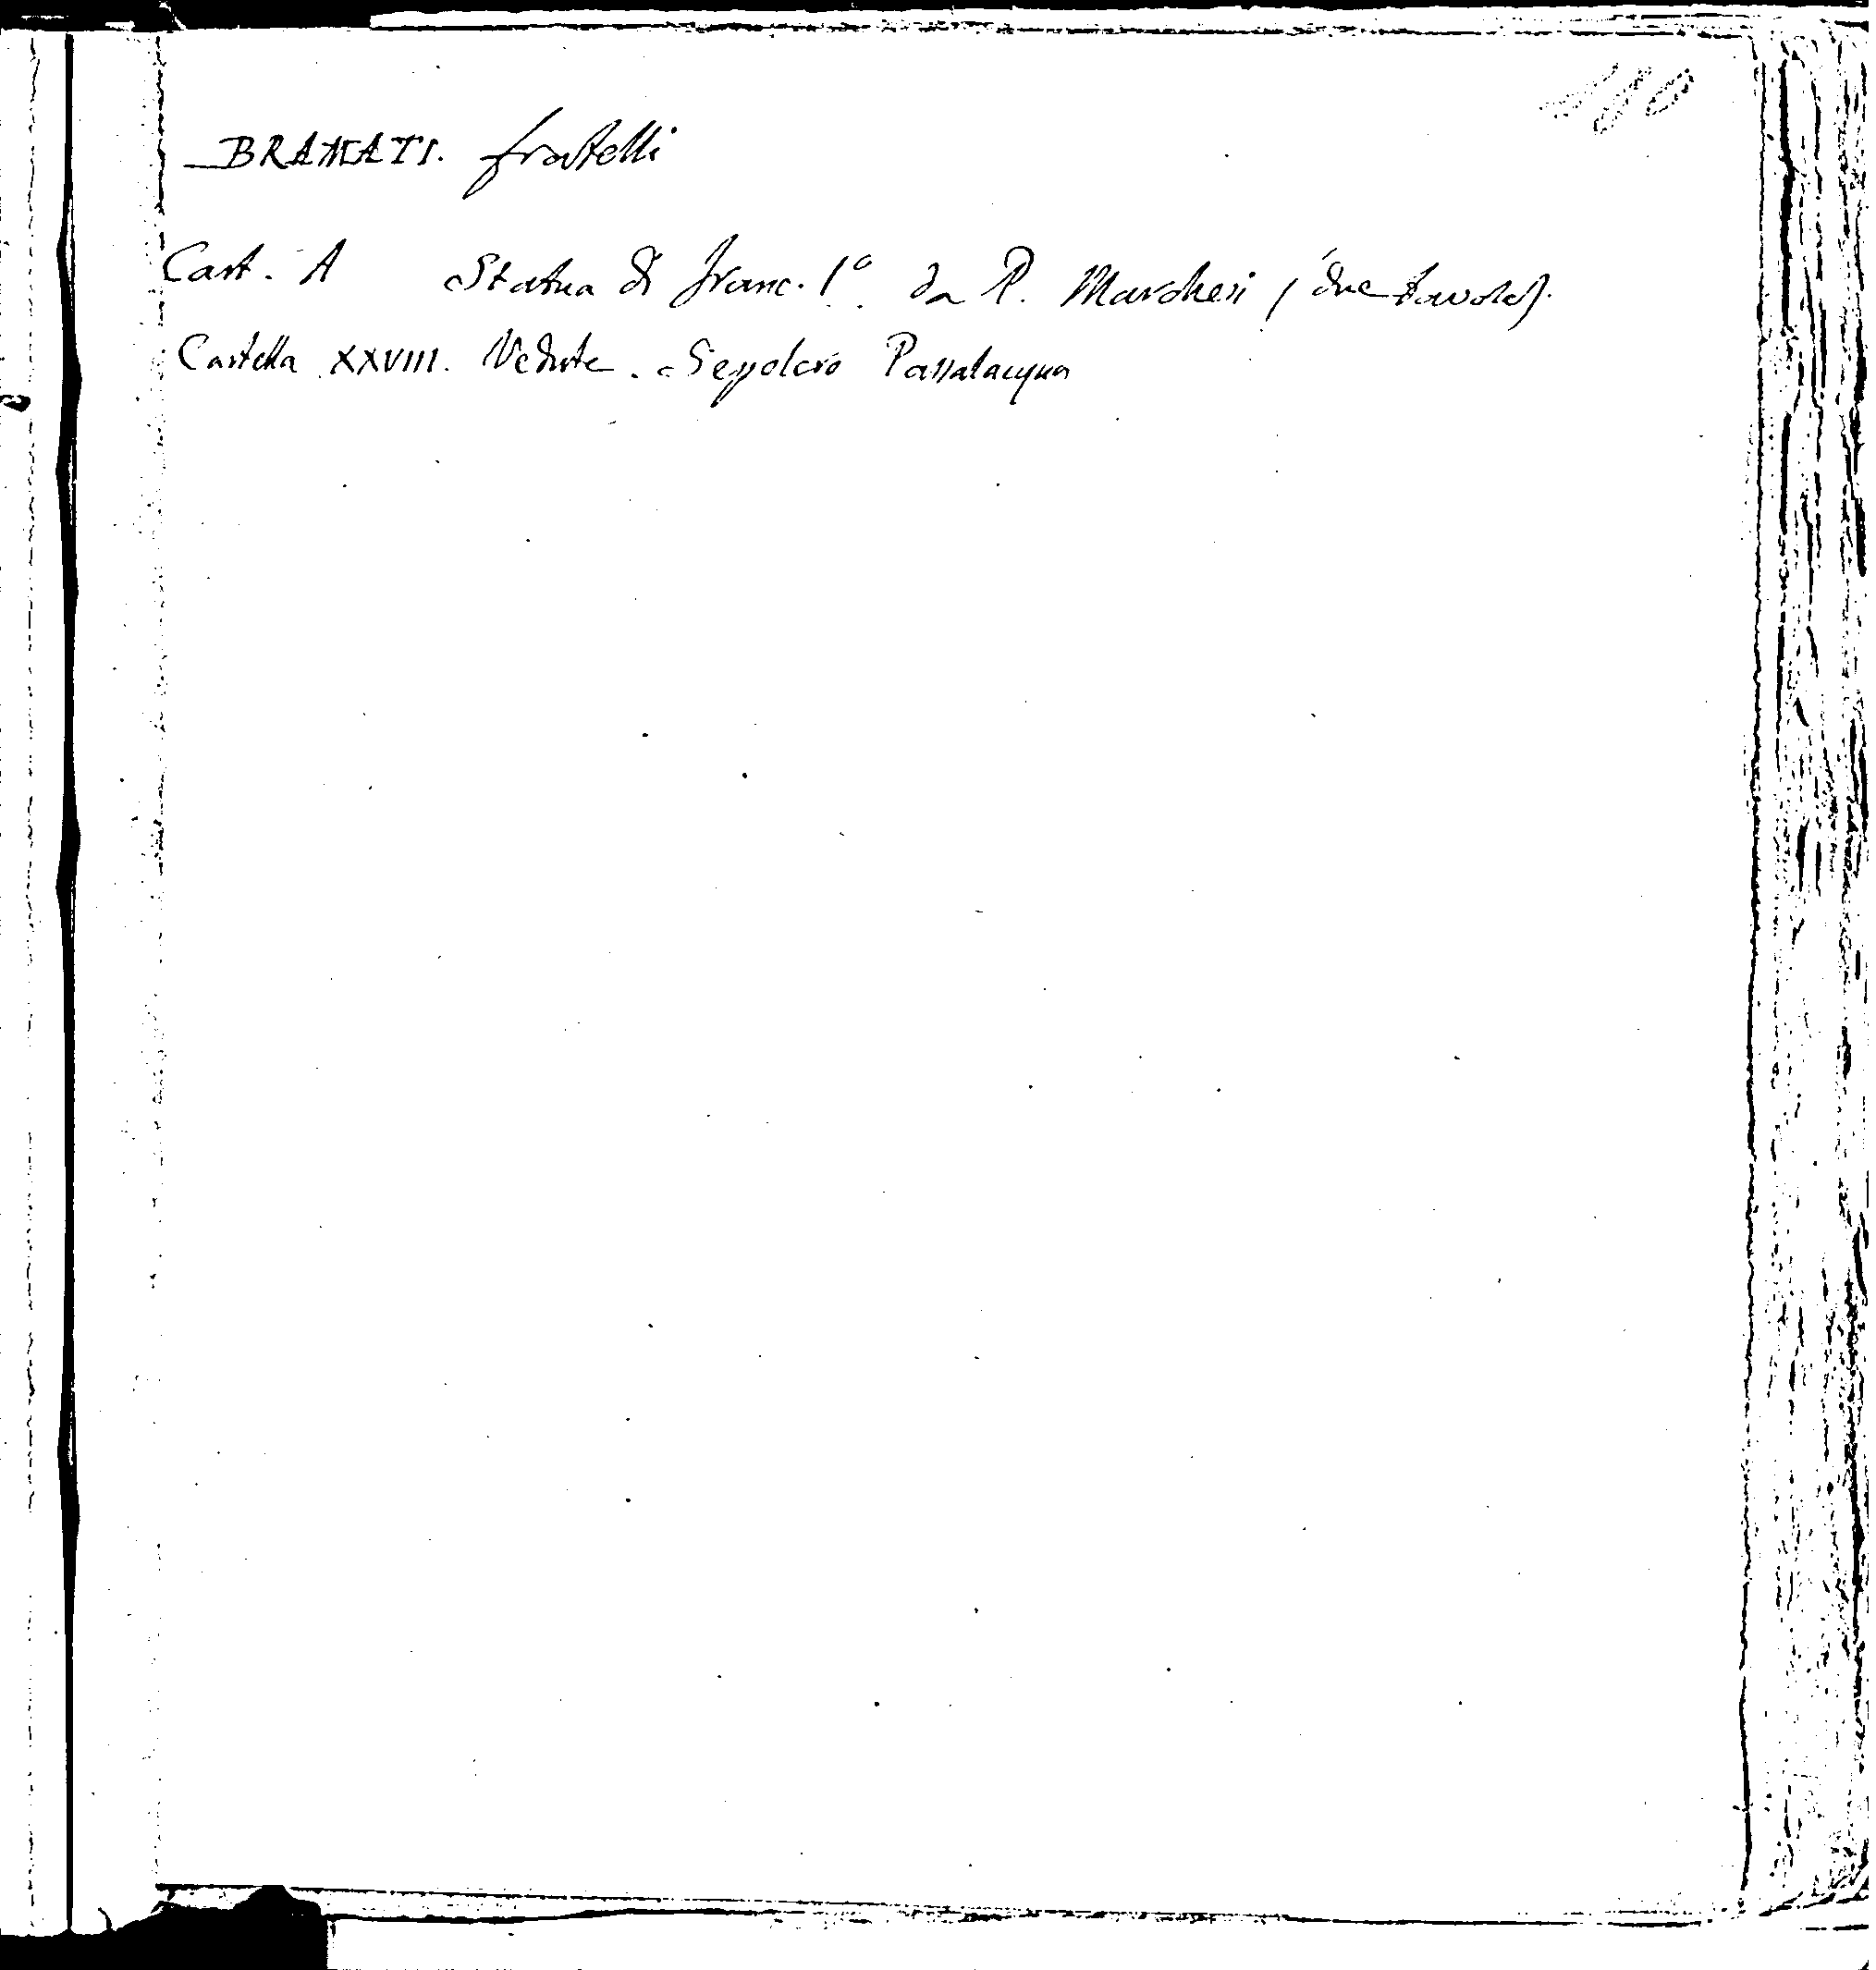 190
BRAMATI. fratelli
Cart. A Statua di Franc. 1º. da P. Marchesi (due tavole).
Cartella XXVIII. Vedute. Sepolcro Passalacqua